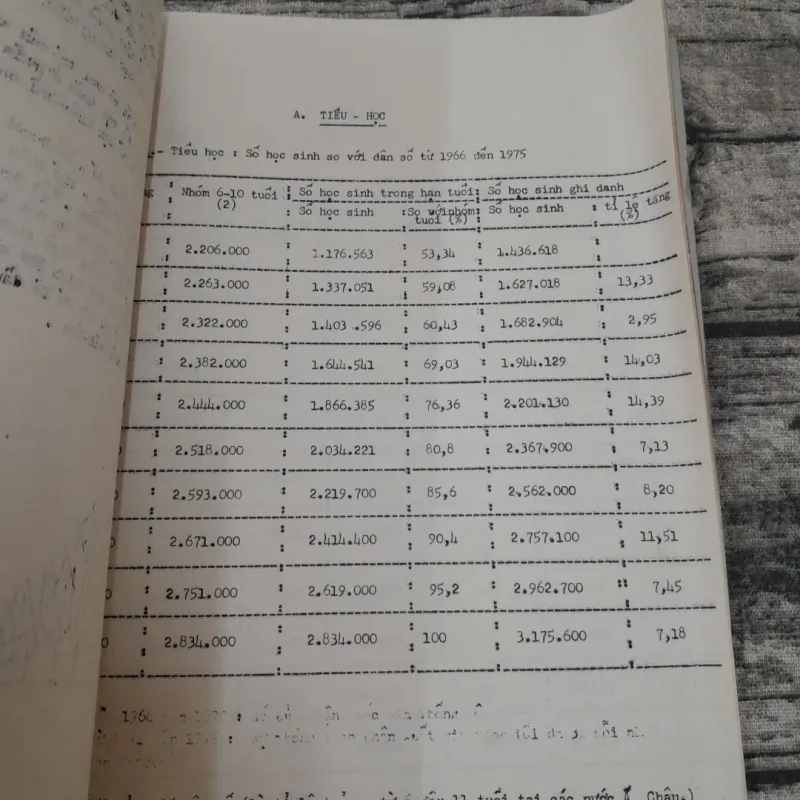 A. TIỂU - HỌC
- Tiểu học : Số học sinh so với dân số từ 1966 đến 1975
Nhóm 6-10 tuổi : Số học sinh trong hạn tuổi: Số học sinh ghi danh
(2) : Số học sinh :So với nhóm: Số học sinh : tỉ lệ tăng
tuổi (%) (%)
: 2.206.000 : 1.176.563 : 53,34 : 1.436.618 :
: 2.263.000 : 1.337.051 : 59,08 : 1.627.018 : 13,33
: 2.322.000 : 1.403.596 : 60,43 : 1.682.904 : 2,95
: 2.382.000 : 1.644.541 : 69,03 : 1.944.129 : 14,03
: 2.444.000 : 1.866.385 : 76,36 : 2.201.130 : 14,39
: 2.518.000 : 2.034.221 : 80,8 : 2.367.900 : 7,13
: 2.593.000 : 2.219.700 : 85,6 : 2.562.000 : 8,20
: 2.671.000 : 2.414.400 : 90,4 : 2.757.100 : 11,51
0 : 2.751.000 : 2.619.000 : 95,2 : 2.962.700 : 7,45
0 : 2.834.000 : 2.834.000 : 100 : 3.175.600 : 7,18
11 tuổi tại các nước Á Châu.)